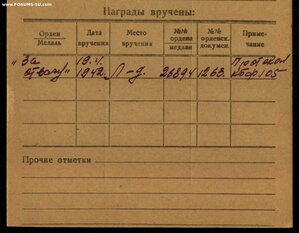 www.FORUMS-su.com
Награды вручены:
Орден Медаль
Дата вручения
Место вручения
№№ ордена медали
№№ орденск. докумен.
Приме- чание
"За отвагу"
19.4. 1942.
Л-д.
26894
1263.
Протокол КБФ 105
Прочие отметки